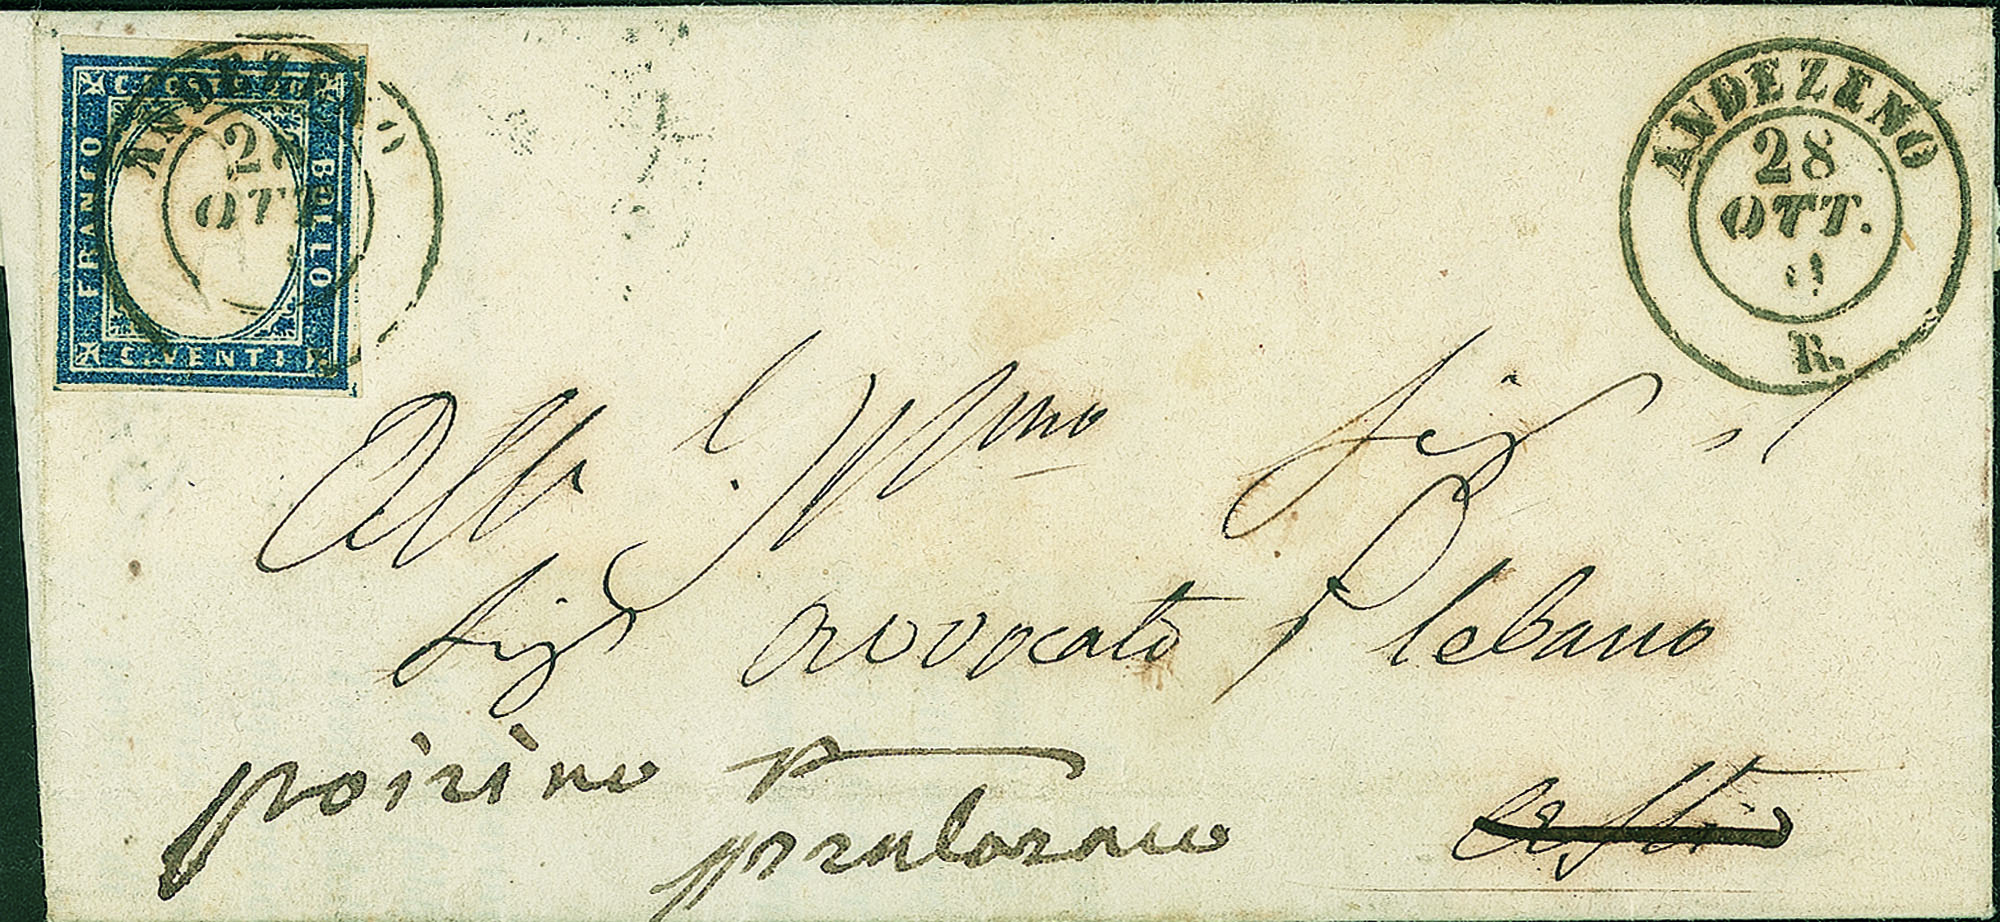 C. POSTE 20
FRANCO
BOLLO
C. VENTI
ANDEZENO
28
OTT.
ANDEZENO
28
OTT.
R.
All' Ill.mo Sig il
Sig avvocato Plebano
poirino P
pralormo